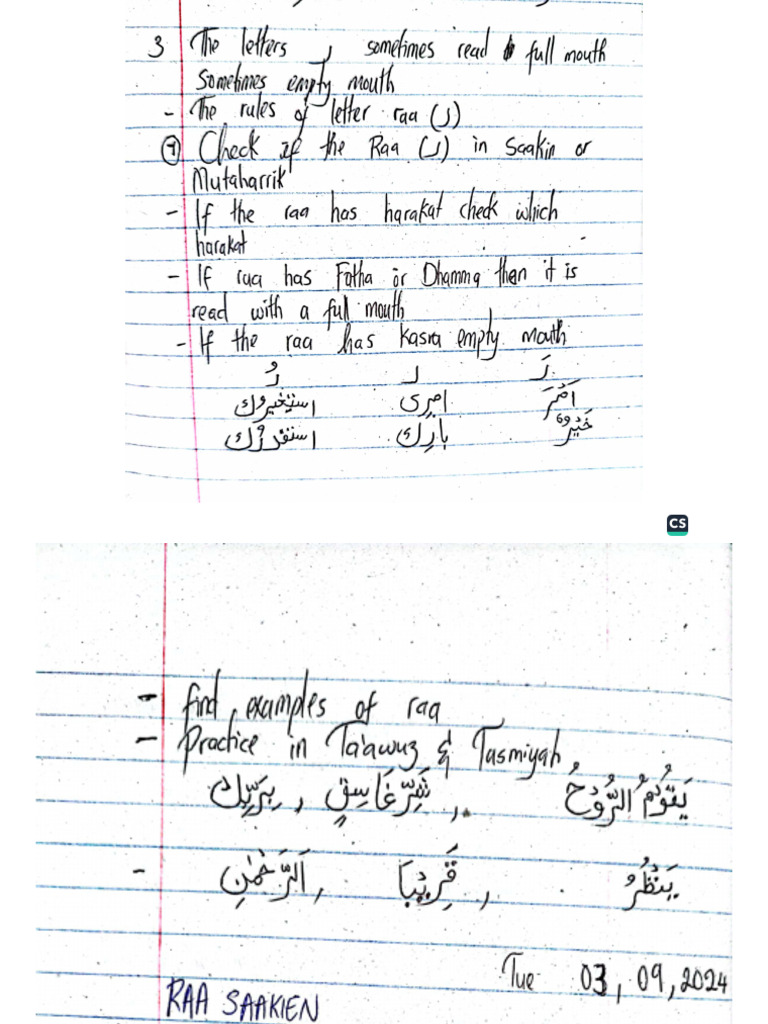 3 The letters ر sometimes read full mouth
Sometimes empty mouth
- The rules of letter raa (ر)
① Check if the Raa (ر) in Saakin or
Mutaharrik
- If the raa has harakat check which
harakat
- If raa has Fatha or Dhamma then it is
read with a full mouth
- If the raa has kasra empty mouth
رَ ر رُ
اَمْرَ امرِى
خَيْرٌ بارِك
CS
- find examples of raa
- Practice in Ta'awuz & Tasmiyah
يَقُوْمُ الرُّوْحُ , شَرِّ غَاسِقٍ ,
- يَنْظُرُ , قَرِيْبًا , اَلرَّحْمٰنِ
Tue 03, 09, 2024
RAA SAAKIEN